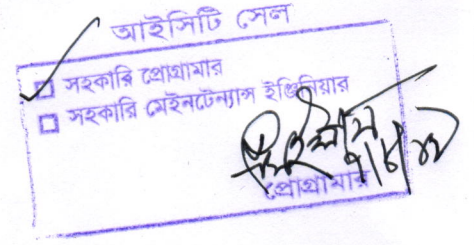 আইসিটি সেল
সহকারি প্রোগ্রামার
সহকারি মেইনটেন্যান্স ইঞ্জিনিয়ার
প্রোগ্রামার